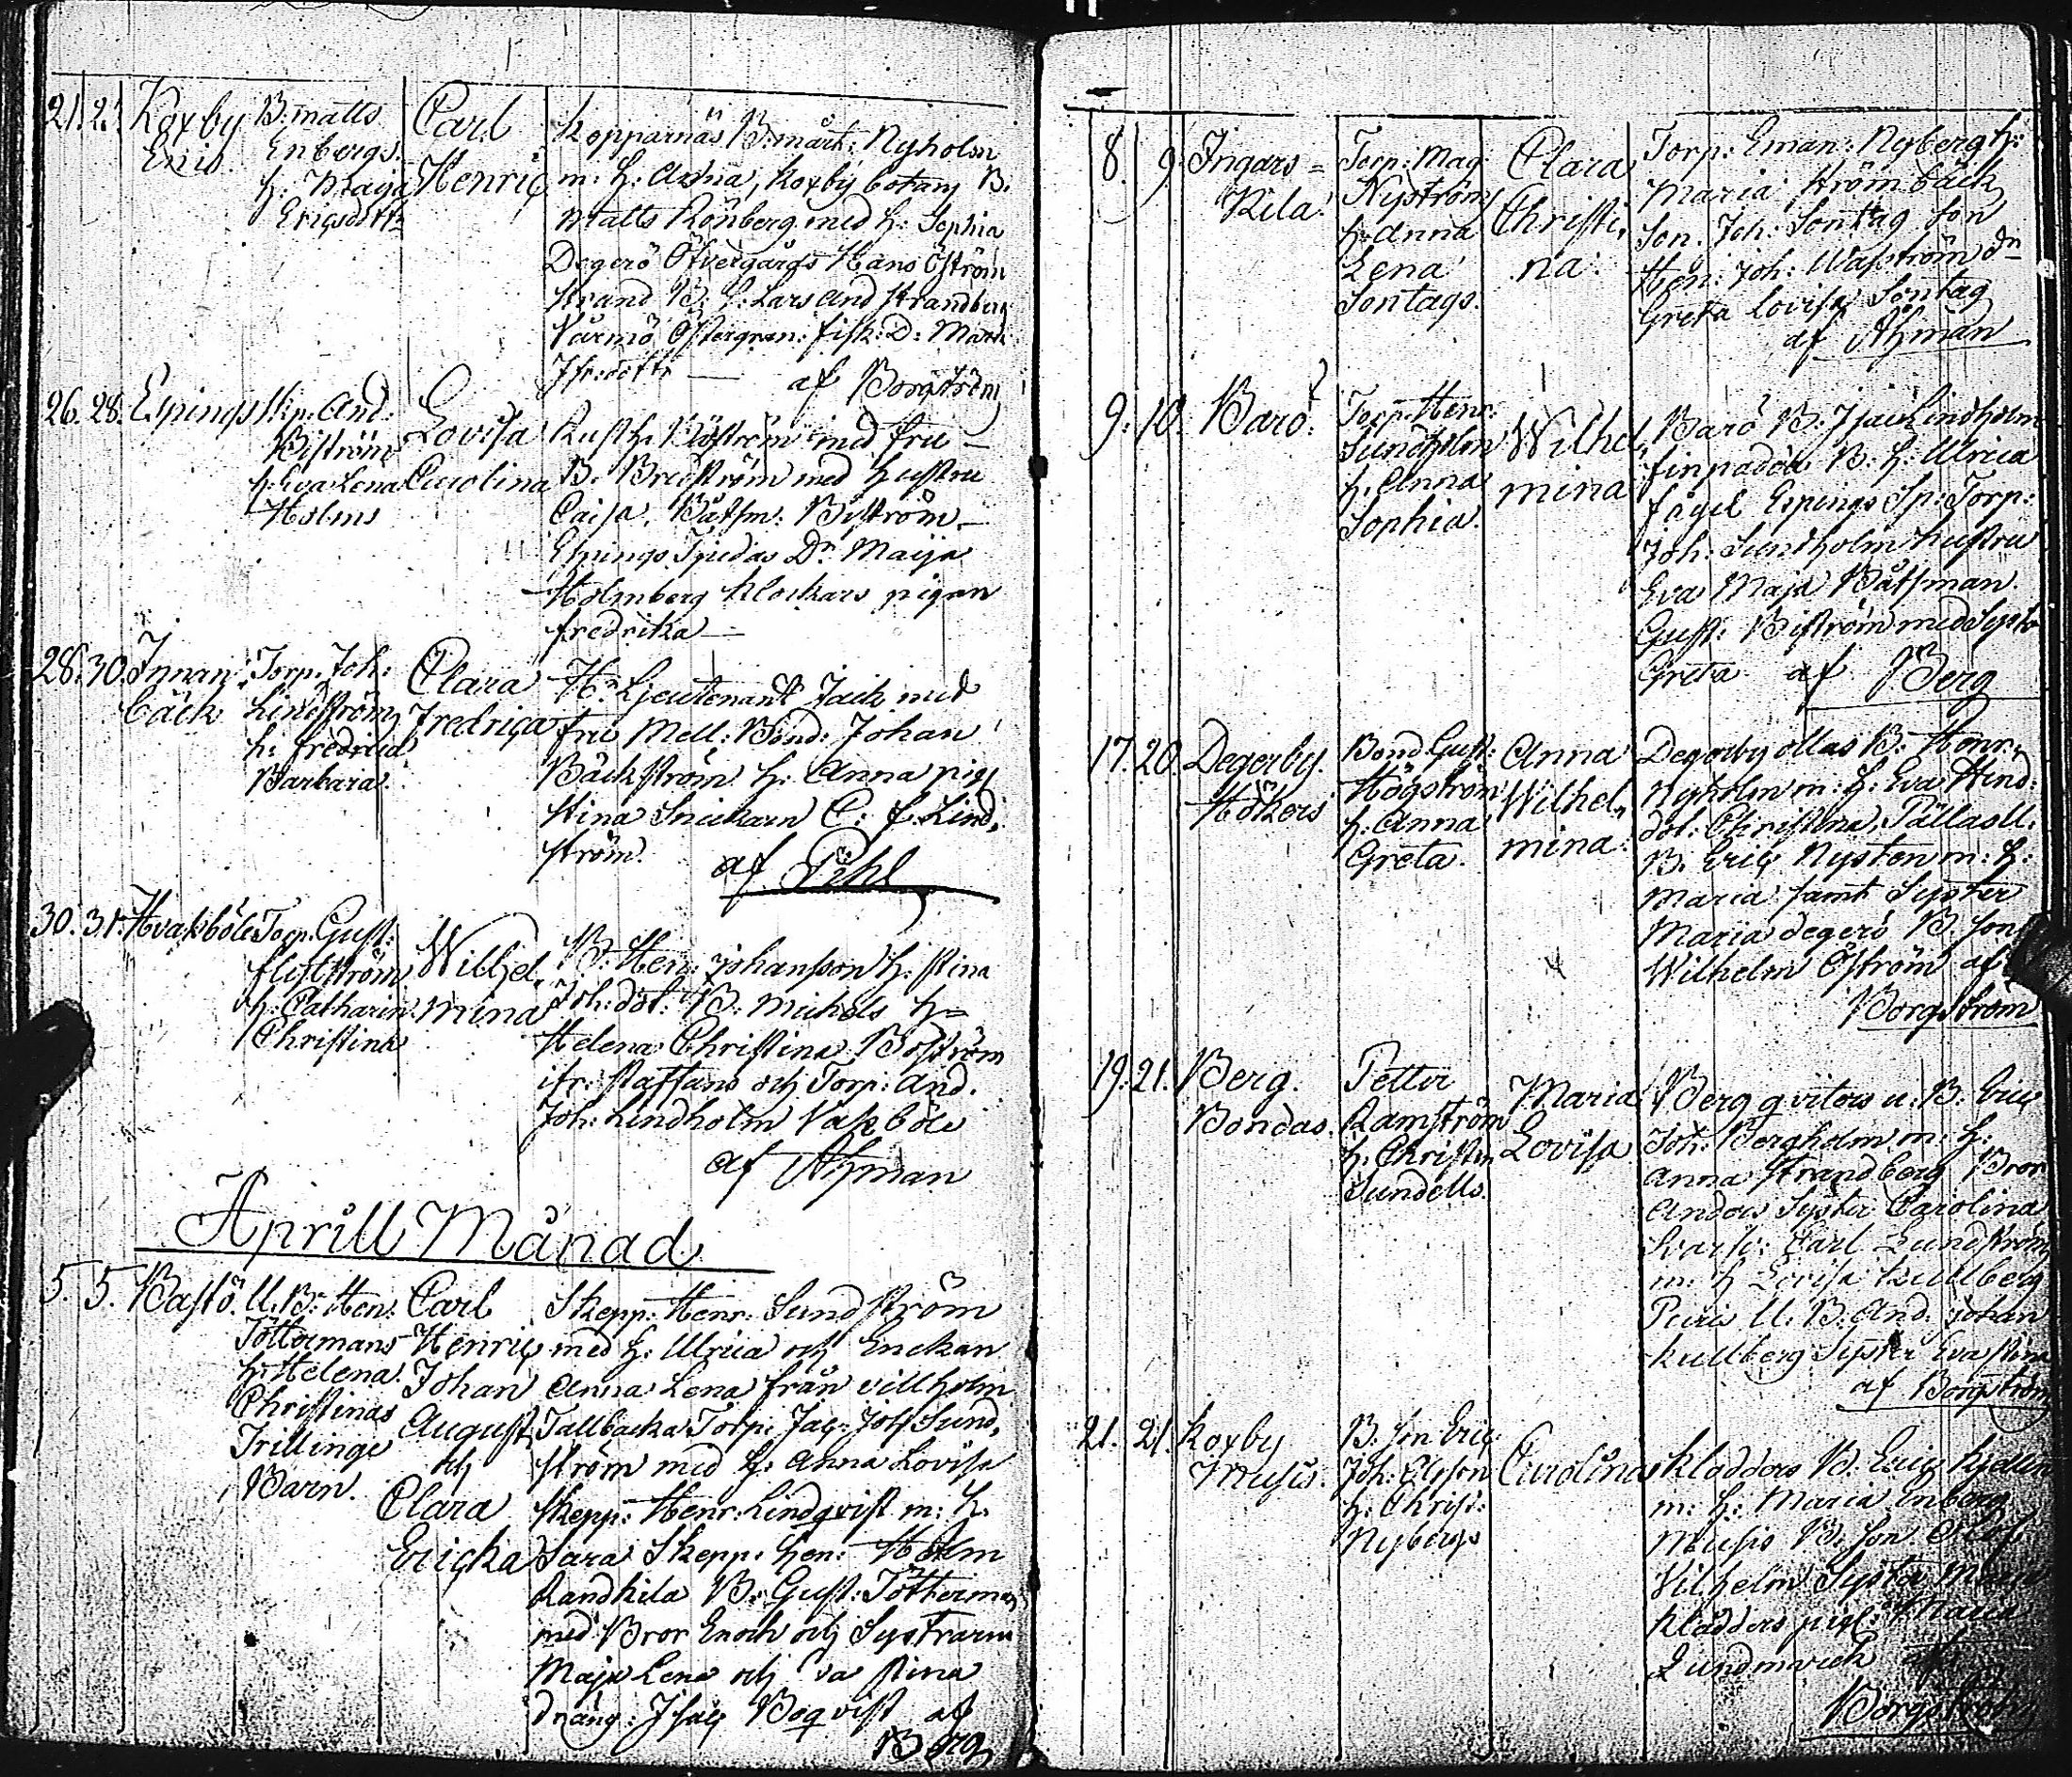 21. 23. Koxby
Enis
B: matts
Enbergs
h: Maija
Ericsdottr
Carl
Henric
Kopparnäs B: mårt: Nyholm
m: h: Anna, Koxby botans B.
Matts Rönberg med h: Sophia
Degerö Öfvergårds Hans Öström
Strand B: S: Lars And Strandberg
Vårmö Östergran: fisk: D: Maria
af Borgström
26. 28. Espings
Skr: And:
Biström
h: Eva Lena
Holms
Lovisa
Carolina
Rusth: Biström med fru
B. Bredström med hustru
Caisa. Båtsm: Biström
Espings Spedas Dr Maija
Holmberg Klockars pigan
fredrika
28. 30. Innan
bäck
Torp. Joh:
Lindström
h: fredrica
Barbara
Clara
Fredrica
Hr Lieutenant Jack med
fru Mell: Bond: Johan
Bäckström h: Anna pig
Stina Snickarn C: f. Lind,
ström.
af Pihl
30. 31. Hvaksböle
Torp. Gust:
flitström
h: Catharin
Christina
Wilhel,
mina
B: Hen: Johansson h: Stina
Joh: dot: B: Michels h=
Helena Christina Boström
ifr: staffans och Torp: And.
Joh: Lindholm Vaksböle
af Åhman
Aprill Månad
5. 5. Bastö.
U. B: Hen:
Töttermans
h: Helena
Christinas
Trillinge
Barn.
Carl
Henric
Johan
August
och
Clara
Ericka
Skepp: Henr: Sundström
med h: Ulrica och Enckan
Anna Lena från villholm
Tallbacka Torp: Jac: Joh Sund,
ström med h: Anna Lovisa
Skepp: Henr: Lindqvist m: h.
Sara Skepp: hen: Holm
Randkila B: Gust: Tötterman
med Bror Enoch och Systrarna
Maja Lena och Eva Stina
dräng: Isac Boqvist af
Berg
8. 9. Ingars=
Kila
Torp: Mag:
Nyström
h: Anna
Lena
Sontags.
Clara
Christi,
na:
Torp: Eman: Nyberg h:
Maria Strömbäck
Son. Joh: Sontag Son
Hen: Joh: Wasström dn
Greta Lovisa Sontag
af Åhman
9. 10. Barö:
Torp: Henr:
Sundholm
h: Anna
Sophia.
Wilhel,
mina
Barö B: Isac Lindholm
finpadda B: h: Ulrica
fågel Espings Sp: Torp:
Joh: Sundholm hustru
Eva Maja Båtsman
Gust: Biström med Syster
Greta af Berg
17. 20. Degerby.
Hökers
Bond Gust:
Högström
h: Anna
Greta.
Anna
Wilhel,
mina:
Degerby ollas B: Henr:
Nyholm m: h: Eva Hind:
dot: Christina, Pällas U.
B. Eric Nysten m: h:
Maria samt Syster
Maria degerö B. Son
Wilhelm Öström af
Borgström
19. 21. Berg.
Bondas.
Petter
Ramström
h: Christin
Sundells.
Maria
Lovisa
Berg qviters u: B. Eric
Joh: Bergholm m: h:
Anna Strandberg Bror
Anders Syster Carolina
Svartv: Carl Lundström
m: h Lovisa Kullberg
U: B: And. Johan
Kullberg Syster Eva Stina
af Borgström
21. 21. Koxby
Musis.
B. Son Eric
Joh: Olsson
h: Christ:
Nybergs
Carolina
Kladders B. Eric
m: h: Maria Enberg
Musis B: Son Olof
Vilhelm Syster
Kladders pig: Maria
Lundmarck af
Borgström